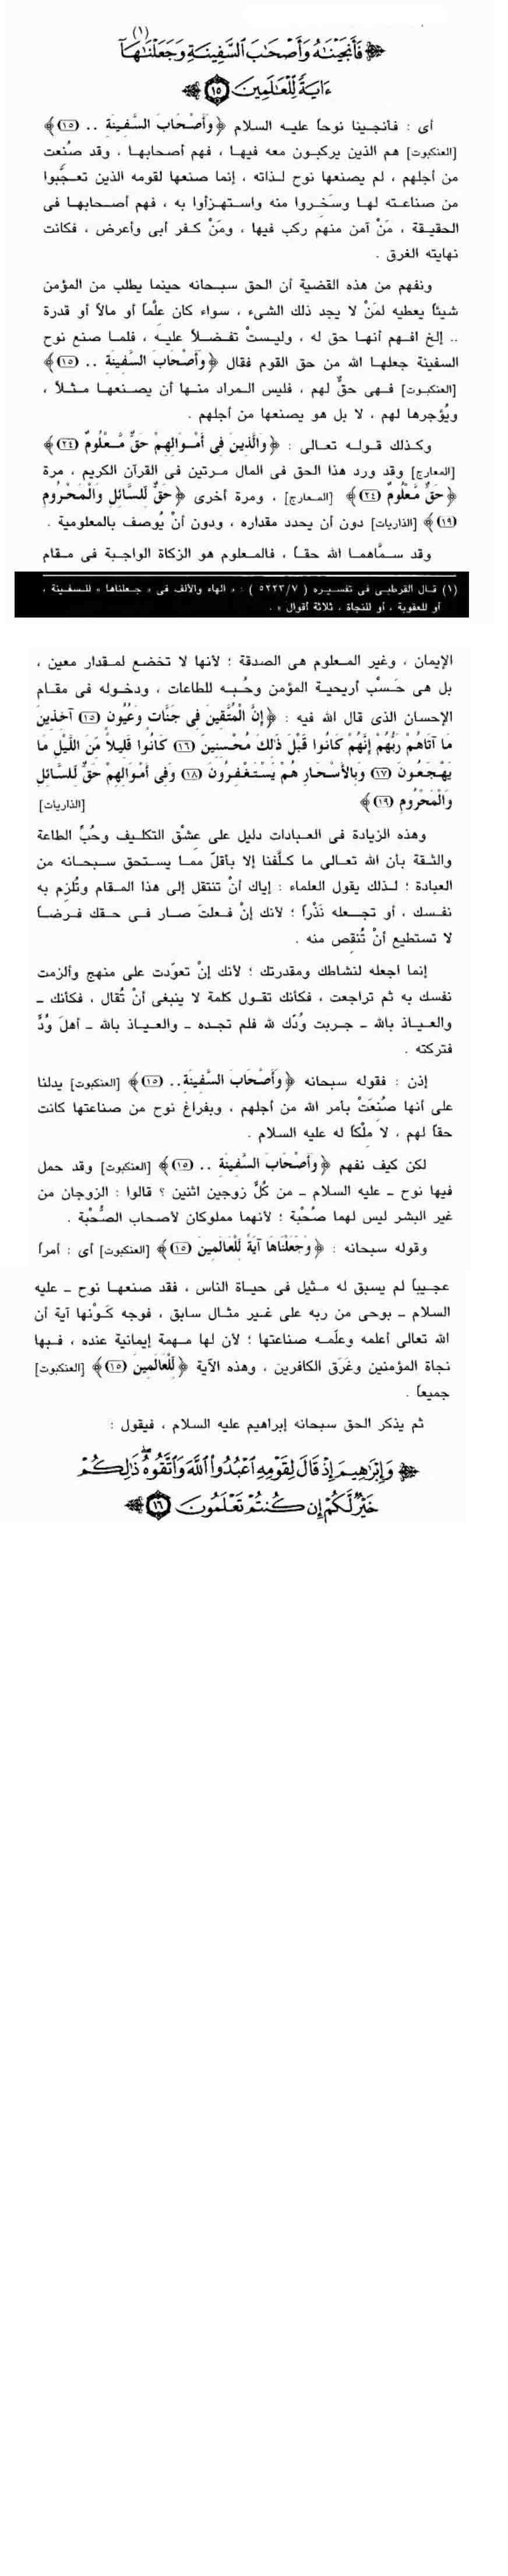 (١)
﴿ فَأَنجَيْنَٰهُ وَأَصْحَٰبَ ٱلسَّفِينَةِ وَجَعَلْنَٰهَآ
ءَايَةً لِّلْعَٰلَمِينَ ﴿١٥﴾ ﴾
أى : فأنجينا نوحاً عليه السلام ﴿ وَأَصْحَابَ السَّفِينَةِ .. (١٥) ﴾
[العنكبوت] هم الذين يركبون معه فيها ، فهم أصحابها ، وقد صُنعت
من أجلهم ، لم يصنعها نوح لذاته ، إنما صنعها لقومه الذين تعجَّبوا
من صناعته لها وسَخِروا منه واستهزأوا به ، فهم أصحابها فى
الحقيقة ، مَنْ آمن منهم ركب فيها ، ومَنْ كفر أبى وأعرض ، فكانت
نهايته الغرق .
ونفهم من هذه القضية أن الحق سبحانه حينما يطلب من المؤمن
شيئاً يعطيه لمَنْ لا يجد ذلك الشىء ، سواء كان علْماً أو مالاً أو قدرة
.. إلخ افهم أنها حق له ، وليستْ تفضلاً عليه ، فلما صنع نوح
السفينة جعلها الله من حق القوم فقال ﴿ وَأَصْحَابَ السَّفِينَةِ .. (١٥) ﴾
[العنكبوت] فهى حقٌّ لهم ، فليس المراد منها أن يصنعها مثلاً ،
ويُؤجرها لهم ، لا بل هو يصنعها من أجلهم .
وكذلك قوله تعالى : ﴿ وَالَّذِينَ فِى أَمْوَالِهِمْ حَقٌّ مَّعْلُومٌ (٢٤) ﴾
[المعارج] وقد ورد هذا الحق فى المال مرتين فى القرآن الكريم ، مرة
﴿ حَقٌّ مَّعْلُومٌ (٢٤) ﴾ [المعارج] ، ومرة أخرى ﴿ حَقٌّ لِّلسَّائِلِ وَالْمَحْرُومِ
(١٩) ﴾ [الذاريات] دون أن يحدد مقداره ، ودون أنْ يُوصف بالمعلومية .
وقد سمَّاهما الله حقاً ، فالمعلوم هو الزكاة الواجبة فى مقام
(١) قال القرطبى فى تفسيره ( ٥٢٢٣/٧ ) : « الهاء والألف فى « جعلناها » للسفينة ،
أو للعقوبة ، أو للنجاة ، ثلاثة أقوال » .
الإيمان ، وغير المعلوم هى الصدقة ؛ لأنها لا تخضع لمقدار معين ،
بل هى حَسْب أريحية المؤمن وحُبه للطاعات ، ودخوله فى مقام
الإحسان الذى قال الله فيه : ﴿ إِنَّ الْمُتَّقِينَ فِى جَنَّاتٍ وَعُيُونٍ (١٥) آخِذِينَ
مَا آتَاهُمْ رَبُّهُمْ إِنَّهُمْ كَانُوا قَبْلَ ذَٰلِكَ مُحْسِنِينَ (١٦) كَانُوا قَلِيلاً مِّنَ اللَّيْلِ مَا
يَهْجَعُونَ (١٧) وَبِالأَسْحَارِ هُمْ يَسْتَغْفِرُونَ (١٨) وَفِى أَمْوَالِهِمْ حَقٌّ لِّلسَّائِلِ
وَالْمَحْرُومِ (١٩) ﴾ [الذاريات]
وهذه الزيادة فى العبادات دليل على عِشْق التكليف وحُبِّ الطاعة
والثقة بأن الله تعالى ما كلَّفنا إلا بأقلّ مما يستحق سبحانه من
العبادة ؛ لذلك يقول العلماء : إياك أنْ تنتقل إلى هذا المقام وتُلزِم به
نفسك ، أو تجعله نَذْراً ؛ لأنك إنْ فعلتَ صار فى حقك فرضاً
لا تستطيع أنْ تُنقِص منه .
إنما اجعله لنشاطك ومقدرتك ؛ لأنك إنْ تعوّدت على منهج وألزمت
نفسك به ثم تراجعت ، فكأنك تقول كلمة لا ينبغى أنْ تُقال ، فكأنك ـ
والعياذ بالله ـ جربت وُدَّك لله فلم تجده ـ والعياذ بالله ـ أهلَ وُدٍّ
فتركته .
إذن : فقوله سبحانه ﴿ وَأَصْحَابَ السَّفِينَةِ .. (١٥) ﴾ [العنكبوت] يدلنا
على أنها صُنعَتْ بأمر الله من أجلهم ، وبفراغ نوح من صناعتها كانت
حقاً لهم ، لا مِلْكاً له عليه السلام .
لكن كيف نفهم ﴿ وَأَصْحَابَ السَّفِينَةِ .. (١٥) ﴾ [العنكبوت] وقد حمل
فيها نوح ـ عليه السلام ـ من كُلٍّ زوجين اثنين ؟ قالوا : الزوجان من
غير البشر ليس لهما صُحْبة ؛ لأنهما مملوكان لأصحاب الصُّحْبة .
وقوله سبحانه : ﴿ وَجَعَلْنَاهَا آيَةً لِّلْعَالَمِينَ (١٥) ﴾ [العنكبوت] أى : أمراً
عجيباً لم يسبق له مثيل فى حياة الناس ، فقد صنعها نوح ـ عليه
السلام ـ بوحى من ربه على غير مثال سابق ، فوجه كَوْنها آية أن
الله تعالى أعلمه وعلَّمه صناعتها ؛ لأن لها مهمة إيمانية عنده ، فبها
نجاة المؤمنين وغَرَق الكافرين ، وهذه الآية ﴿ لِّلْعَالَمِينَ (١٥) ﴾ [العنكبوت]
جميعاً .
ثم يذكر الحق سبحانه إبراهيم عليه السلام ، فيقول :
﴿ وَإِبْرَٰهِيمَ إِذْ قَالَ لِقَوْمِهِ ٱعْبُدُوا۟ ٱللَّهَ وَٱتَّقُوهُ ۖ ذَٰلِكُمْ
خَيْرٌ لَّكُمْ إِن كُنتُمْ تَعْلَمُونَ ﴿١٦﴾ ﴾